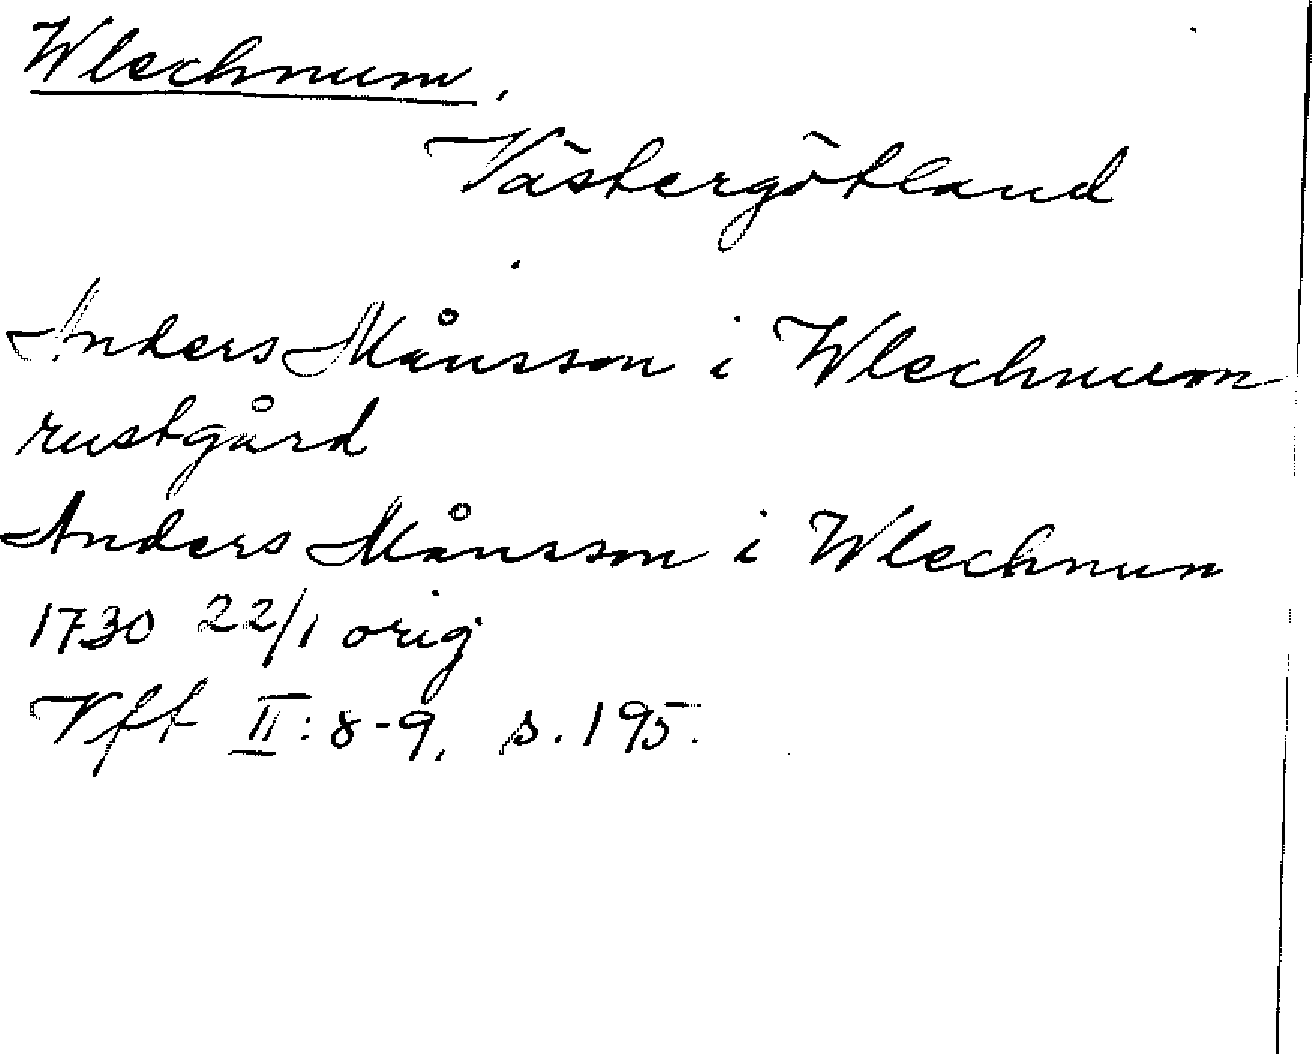 Wlechnum.
Västergötland
Anders Månsson i Wlechnum
rustgård
Anders Månsson i Wlechnun
1730 22/1 orig
Vft II:8-9. s.195.